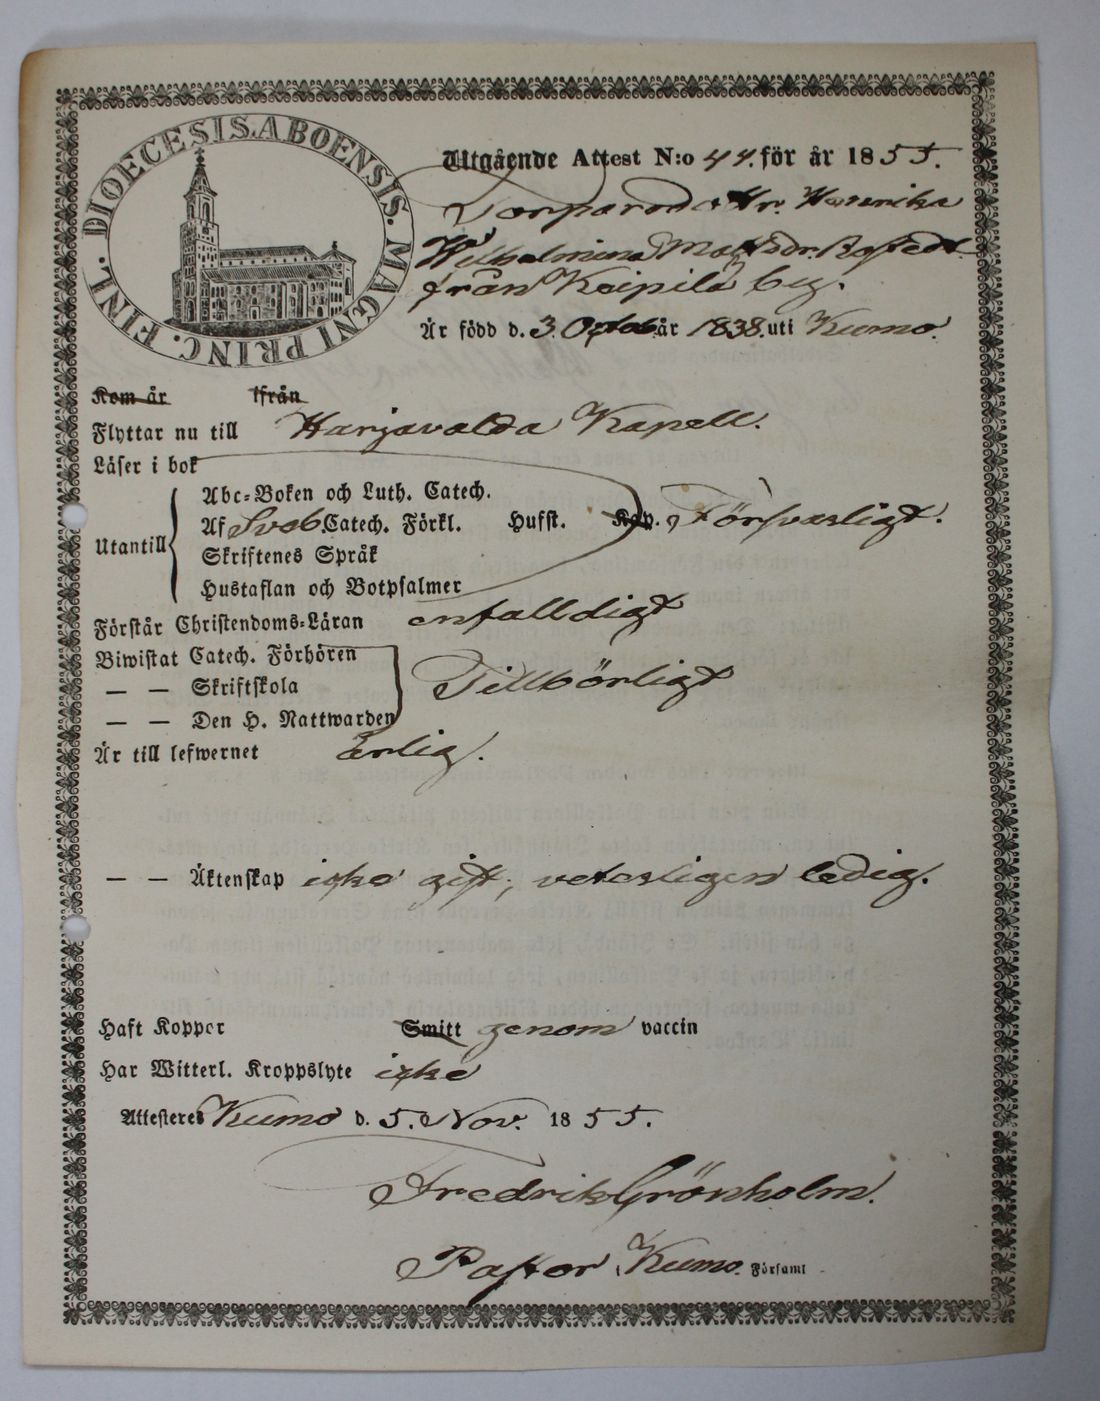 DIOECESIS. ABOENSIS. MAGNI PRINC. FINL.
Utgående Attest N:o 44. för år 1855.
Hr. Henrika
Wilhelmina
från Keipilä by.
Är född d. 3. Octob. år 1838. uti Kumo.
Kom år Ifrån
Flyttar nu till Harjavalda Kapell.
Läser i bok
Abc-Boken och Luth. Catech.
Utantill Af Sveb. Catech. Förkl. Hufst. Kap. Försvarligt.
Skriftenes Språk
Hustaflan och Botpsalmer
Förstår Christendoms-Läran enfalldigt
Biwistat Catech. Förhören
— — Skriftskola Tillbörligt
— — Den H. Nattwarden
Är till lefwernet ärlig.
— — Äktenskap icke gift, veterligen ledig.
Haft Koppor Smitt genom vaccin
Har Witterl. Kroppslyte icke
Attesteres Kumo d. 5. Nov. 1855.
Fredrik Grönholm.
Pastor i Kumo. Församl